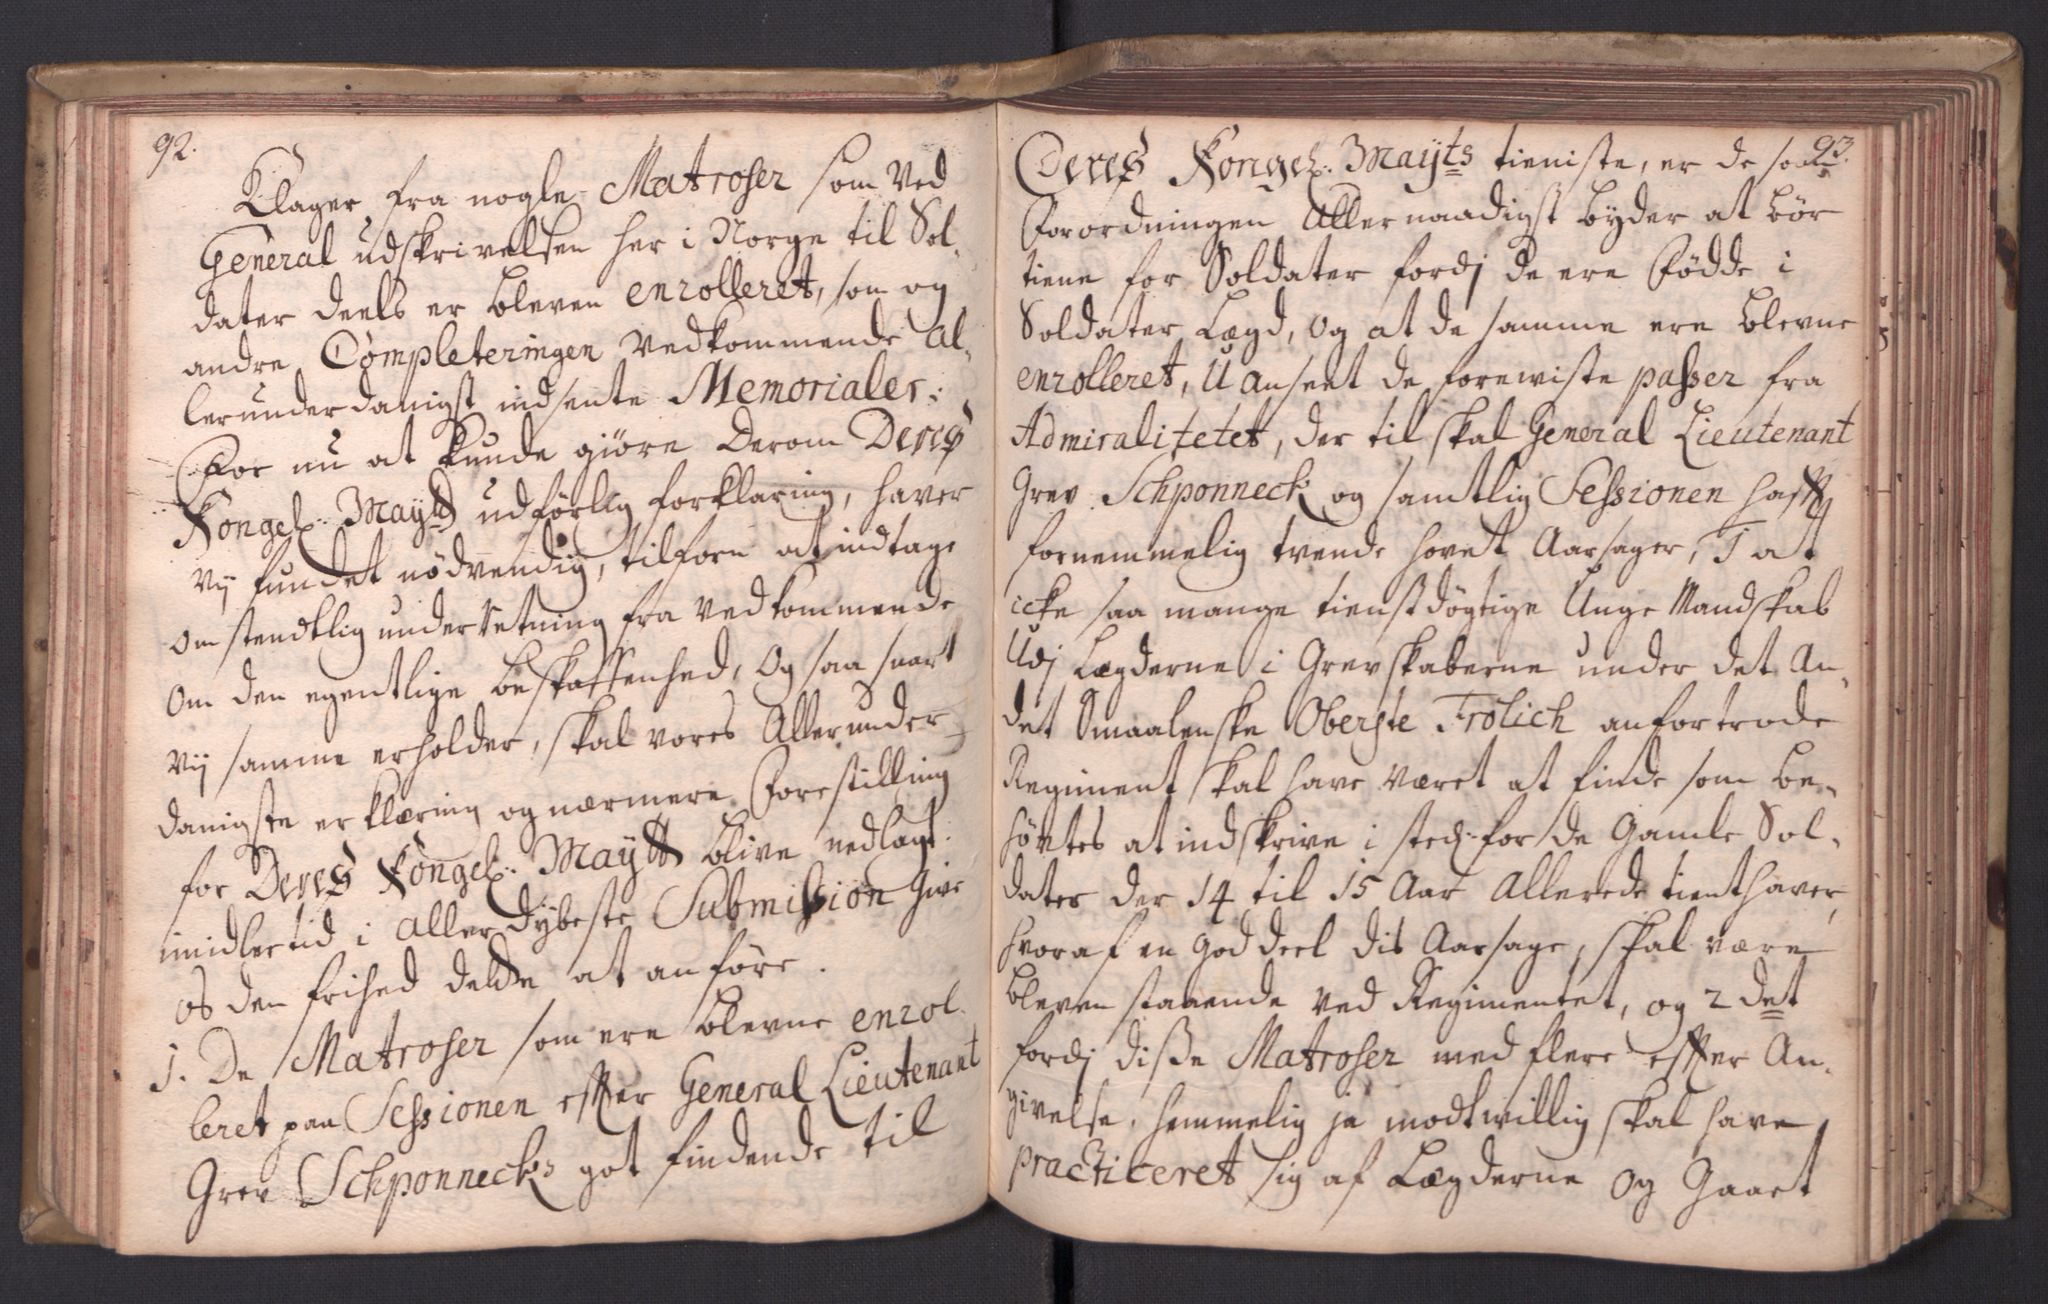 92.
Klager fra nogle Matroser som ved
General udskrivelsen her i Norge til Sol-
dater deels er bleven enrolleret, som og
andre Completeringen vedkommende al-
lerunderdanigst indsente Memorialer:
For nu at kunde giöre derom Deres
Kongel: Mayts udförlig forklaring, haver
vij fundet nödvendig, tilforn at indtage
omstendtlig underretning fra vedkommende
om den egentlige beskaffenhed, og saa snart
vij samme erholder, skal vores Allerunder-
danigste erklæring og nærmere Forestilling
for Deres Kongel: Maytt blive nedlagt.
imidlertid i allerdybeste Submission Give
os den frihed dette at anföre.
1. De Matroser som ere blevne enrol-
leret paa Sessionen efter General Lieutenant
Grev Schponnecks got findende til
93.
Deres Kongel: Mayts tieniste, er de som
Forordningen Allernaadigst byder at bör
tiene for Soldater fordj de ere Födde i
Soldater Lægd, og at de samme ere blevne
enrolleret, Uanseet de forewiste passer fra
Admiralitetet, der til skal General Lieutenant
Grev Schponneck og samtlig Sessionen hafft
fornemmelig tvende hovet Aarsager, 1 at
icke saa mange tienstdögtige Unge Mandskab
Udj Lægderne i Grevskaberne under det An-
det Smaalenske Oberste Frölich anfortrode
Regiment skal have været at finde som be-
hövtes at indskrive i sted for de Gamle Sol-
dater der 14 til 15 Aar Allerede tient haver,
hvoraf en god deel dis Aarsage, skal være
bleven staaende ved Regimentet, og 2 det
fordj disse Matroser med flere effter An-
givelse, hemmelig ja modtwillig skal have
practiceret sig af Lægderne og Gaaet